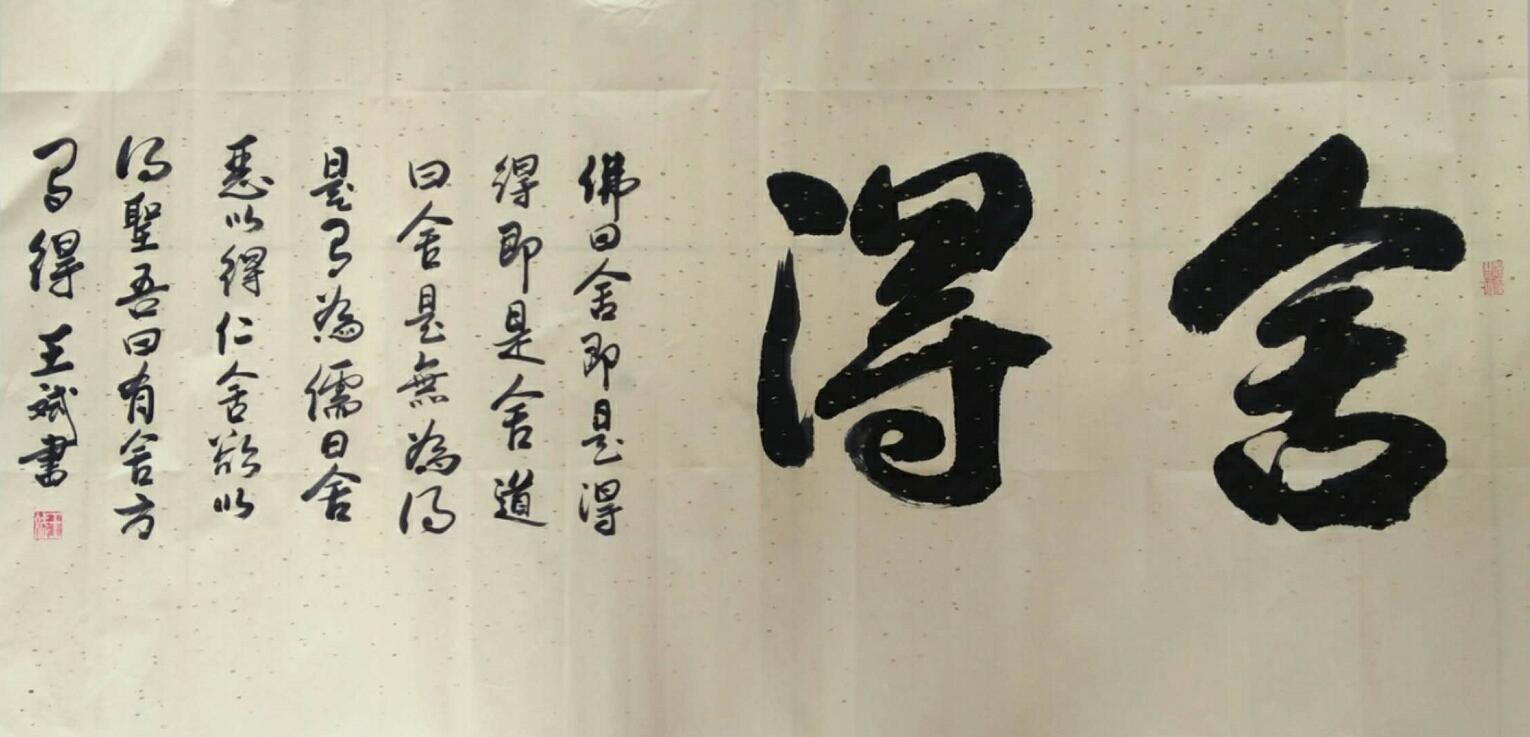 舍得
佛曰舍即是得
得即是舍道
曰舍是無為得
是有為儒曰舍
惡以得仁舍欲以
得聖吾曰有舍方
有得 王斌書